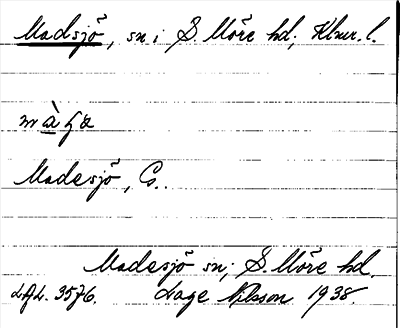 Madsjö, sn i S. Möre hd, Klmr. l.
Madesjö, Co.
Madesjö sn; S. Möre hd.
LAL. 3576. Lage Nilsson 1938.